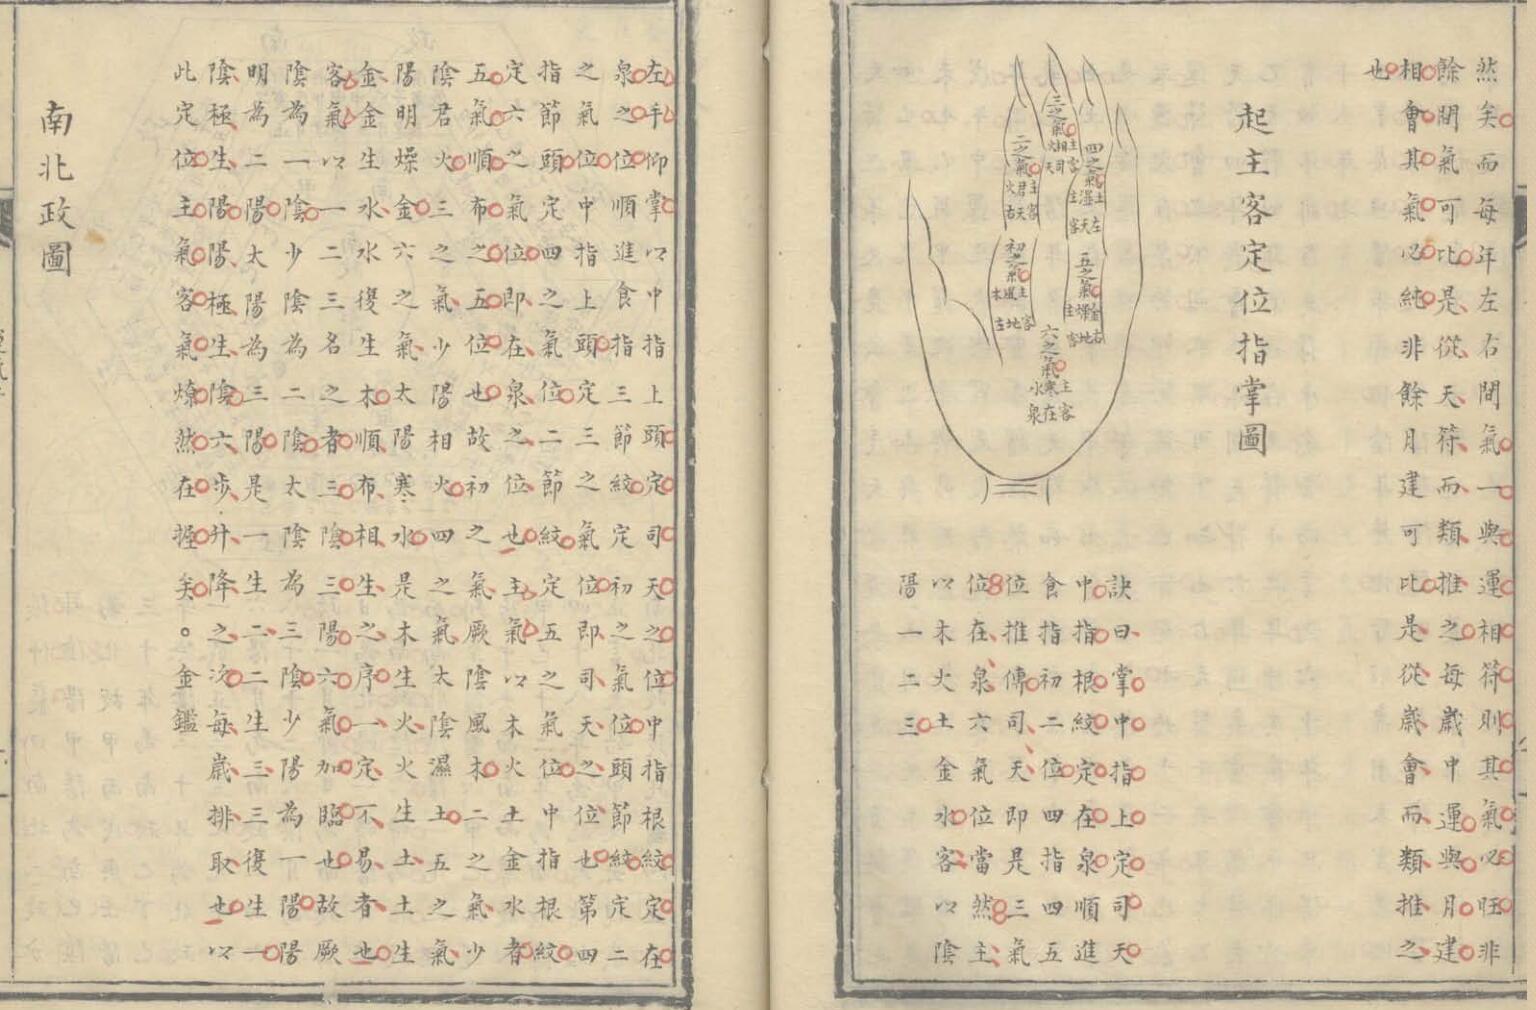 然矣而每年左右間氣一與運相符則其氣必旺非
餘間氣可比是從天符而類推之每歲中運與月建
相會其氣必純非餘月建可比是從歲會而類推之
也
起主客定位指掌圖
三之氣
主相火
客司天
二之氣
主君火
客天右
四之氣
主濕土
客天左
初之氣
主風木
客地左
五之氣
主燥金
客地右
六之氣
主寒水
客在泉
訣曰掌中指上定司天
中指根紋定在泉順進
食指初二位四指四五
位推傳司天即是三氣
位在泉六氣位當然主
以木火土金水客以陰
陽一二三
左手仰掌以中指上頭定司天之位中指根紋定在
泉之位順進食指三節紋定初之氣位頭節紋定二
之氣位中指上頭定三之氣位即司天之位也第四
指節頭定四之氣位二節紋定五之氣位中指根紋
定六之氣位即在泉之位也主氣以木火土金水者
五氣順布之五位也故初之氣厥陰風木二之氣少
陰君火三之氣少陽相火四之氣太陰濕土五之氣
陽明燥金六之氣太陽寒水是木生火火生土土生
金金生水水復生木順布相生之序一定不易者也
客氣以一二三名之者三陰三陽六氣加臨也故厥
陰為一陰少陰為二陰太陰為三陰少陽為一陽陽
明為二陽太陽為三陽是一生二二生三三復生一
陰極生陽陽極生陰六步升降之次每歲排取也以
此定位主氣客氣燎然在握矣。金鑑
南北政圖